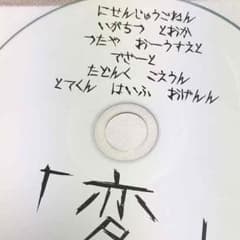 にせんじゅうごねん
いがちつ とおか
つたや おーうすえと
でざーと
たとんく ごえうん
とてくん はいふ おげんん
「変